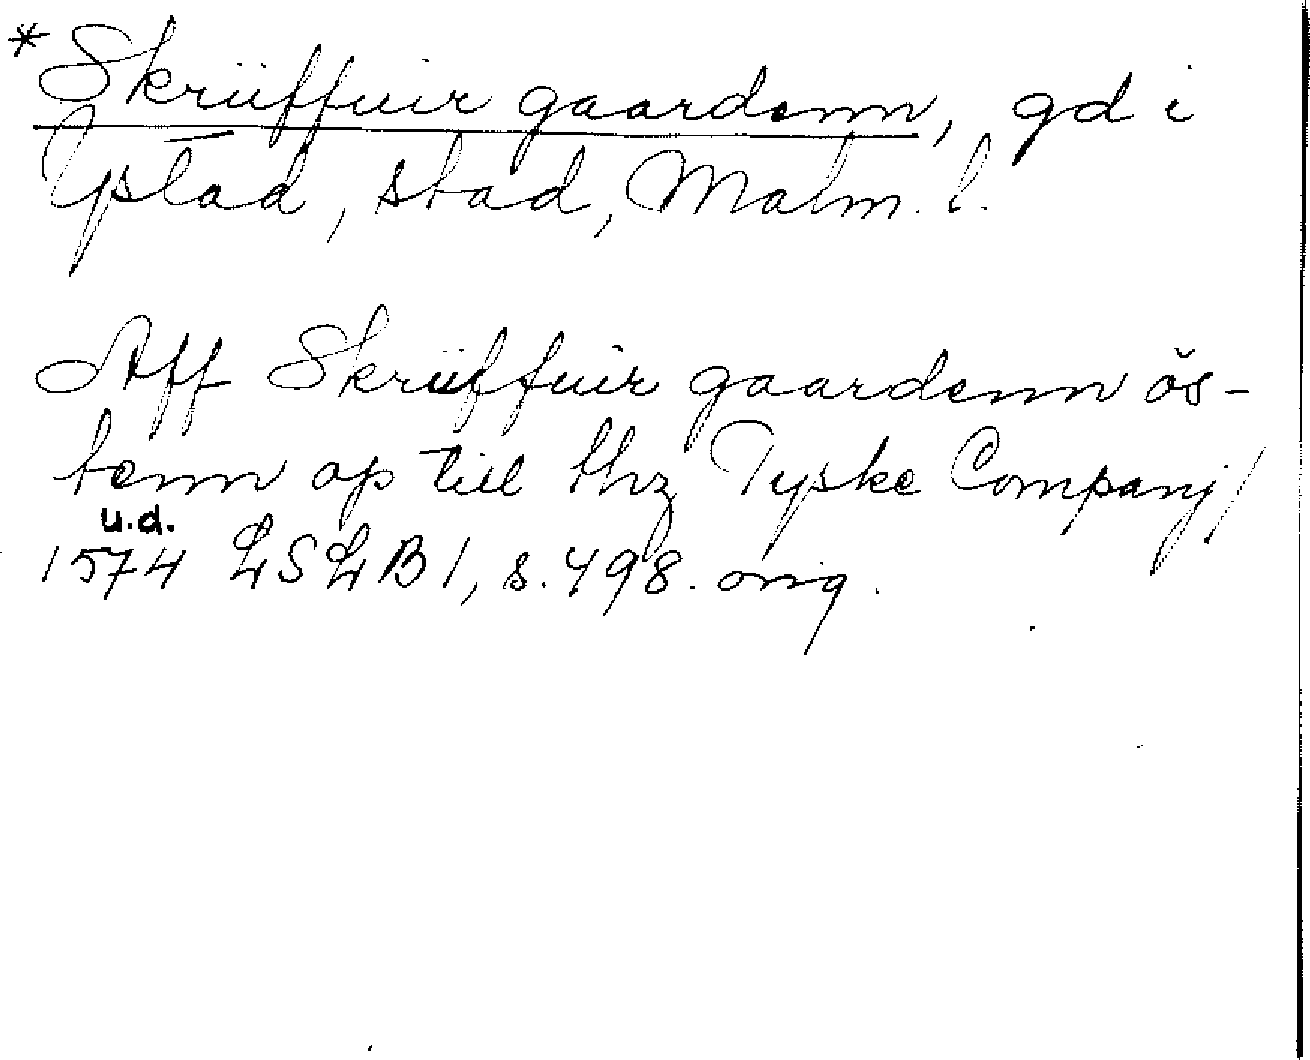 *Skrüffuir gaardenn, gd i
Ystad, stad, Malm. l.
Aff Skrüffuir gaardenn ös-
tenn op till thz Tyske Companj/
u.d.
1574 LSLB 1, s. 498. orig.